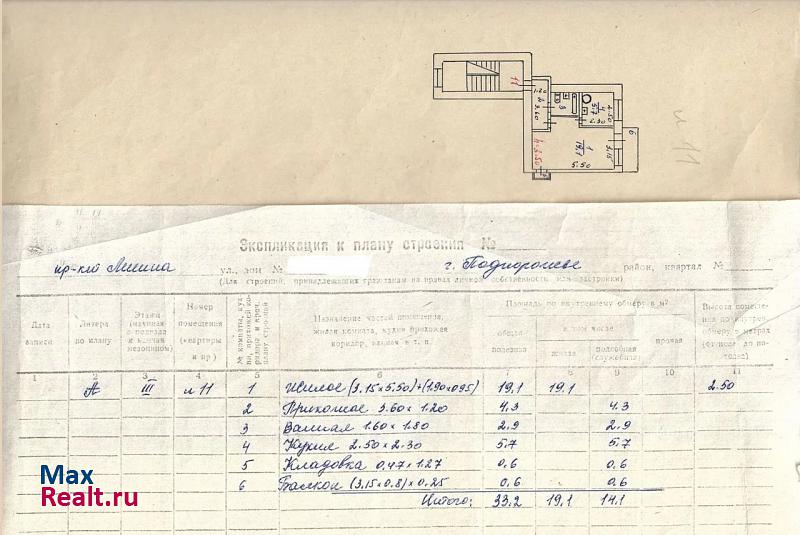 11
1.20
2
3.60
3
4
5.7
2.50
2.30
6
1
19.1
3.15
5.50
h-2.50
л 11
Экспликация к плану строения №
пр-кт Ленина ул., дом № г. Подпорожье район, квартал №
(Для строений, принадлежащих гражданам на правах личной собственность или застройки)
Дата записи
Литера по плану
Этажи (начиная с подвала и кончая мезонином)
Номер помещения (квартиры и пр)
Назначение частей помещения, жилая комната, кухня прихожая коридор, ванная и т. п.
Площадь по внутреннему обмеру в м²
общая полезная
в том числе
жилая
подсобная (служебная)
прочая
Высота помещения по внутреннему обмеру в метрах (от пола до потолка)
1 2 3 4 5 6 7 8 9 10 11
А III л 11 1 Жилое (3.15 х 5.50)+(1.90х0.95) 19,1 19,1 2.50
2 Прихожая 3.60 х 1.20 4.3 4.3
3 Ванная 1.60 х 1.80 2.9 2.9
4 Кухня 2.50 х 2.30 5.7 5.7
5 Кладовка 0.47 х 1.27 0,6 0.6
6 Балкон (3,15 х 0.8) х 0.25 0.6 0.6
Итого: 33.2 19,1 14.1
Max
Realt.ru